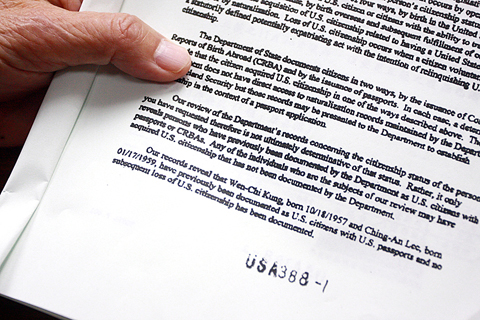 occurs by oper
four ways, by birth in the United
by birth overseas and subsequent fulfillment of
acquisition of U.S. citizenship related to having a United States
citizenship. Loss of U.S. citizenship occurs when a citizen volunta
a statutorily defined potentially expatriating act with the intention of relinquishing U.
citizenship.
The Department of State documents citizens in two ways, by the issuance of Con
Reports of Birth Abroad (CRBA) and by the issuance of passports. In each case, a determ
that the citizen acquired U.S. citizenship in one of the ways described above. The
does not have direct access to naturalization records maintained by the Departm
Security but those records may be presented to the Department to establish
in the context of a passport application.
Our review of the Department's records concerning the citizenship status of the person
you have requested therefore is not ultimately determinative of that status. Rather, it only
reveals persons who have previously been documented by the Department as U.S. citizens with
passports or CRBAs. Any of the individuals who are the subjects of our review may have
acquired U.S. citizenship that has not been documented by the Department.
Our records reveal that Wen-Chi Kung, born 10/18/1957 and Ching-An Lee, born
01/17/1959, have previously been documented as U.S. citizens with U.S. passports and no
subsequent loss of U.S. citizenship has been documented.
USA388-1